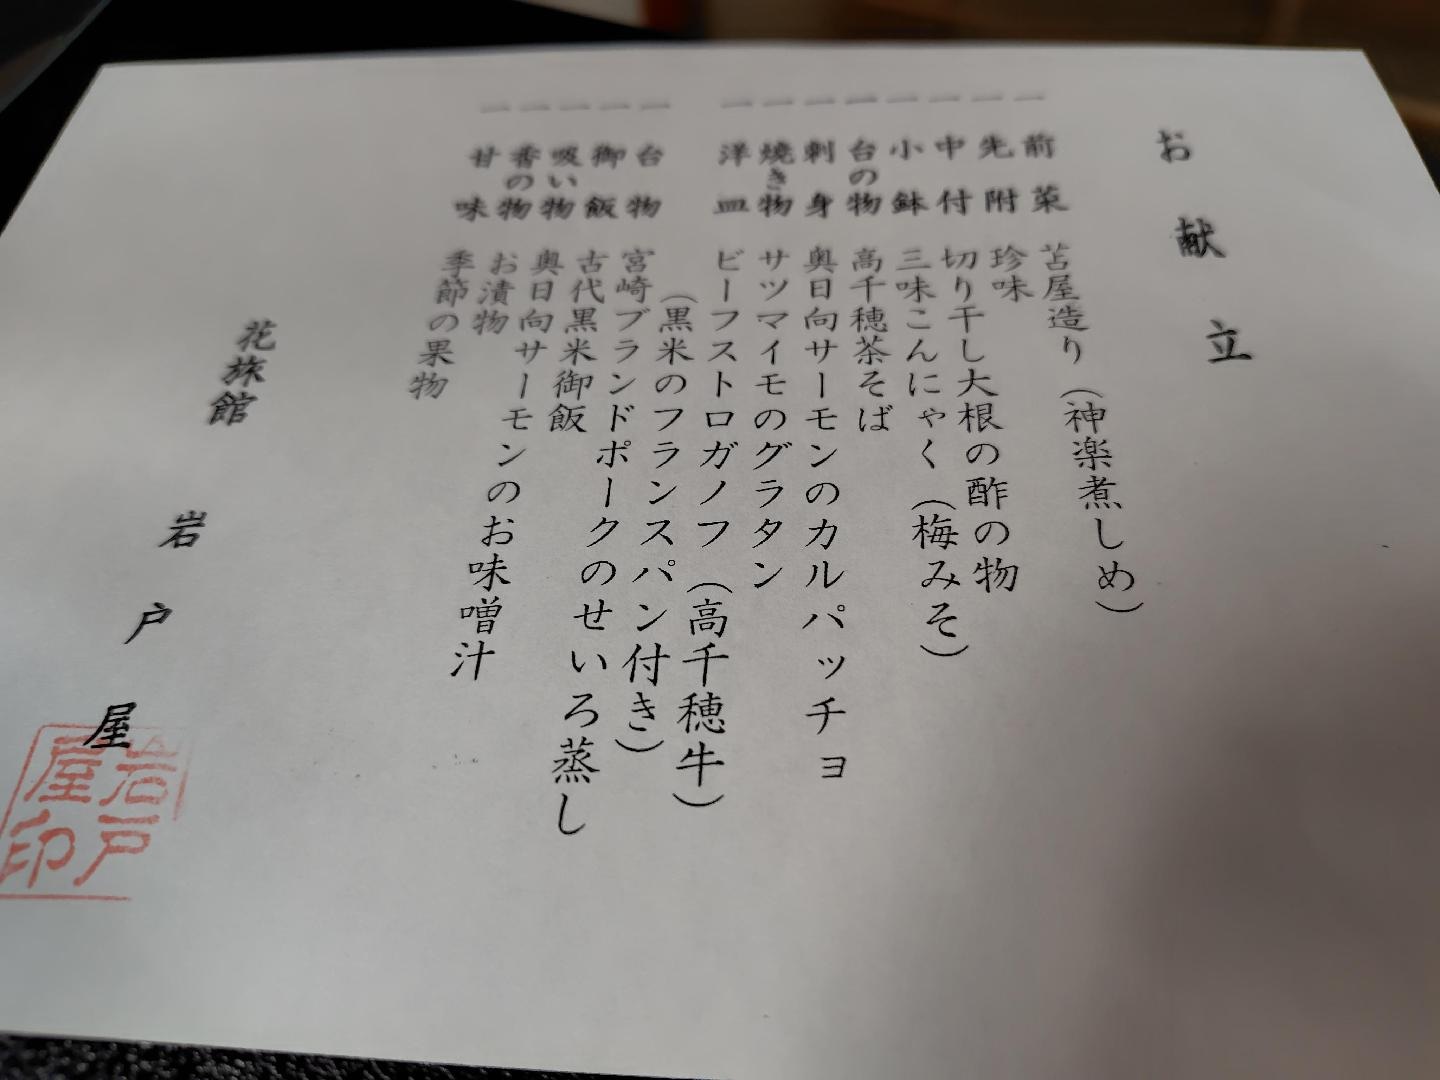 お献立
一 前菜 苫屋造り（神楽煮しめ）
一 先附 珍味
一 中付 切り干し大根の酢の物
一 小鉢 三味こんにゃく（梅みそ）
一 台の物 高千穂茶そば
一 刺身 奥日向サーモンのカルパッチョ
一 焼き物 サツマイモのグラタン
一 洋皿 ビーフストロガノフ（高千穂牛）
（黒米のフランスパン付き）
一 台物 宮崎ブランドポークのせいろ蒸し
一 御飯 古代黒米御飯
一 吸い物 奥日向サーモンのお味噌汁
一 香の物 お漬物
一 甘味 季節の果物
花旅館 岩戸屋
岩戸
屋印